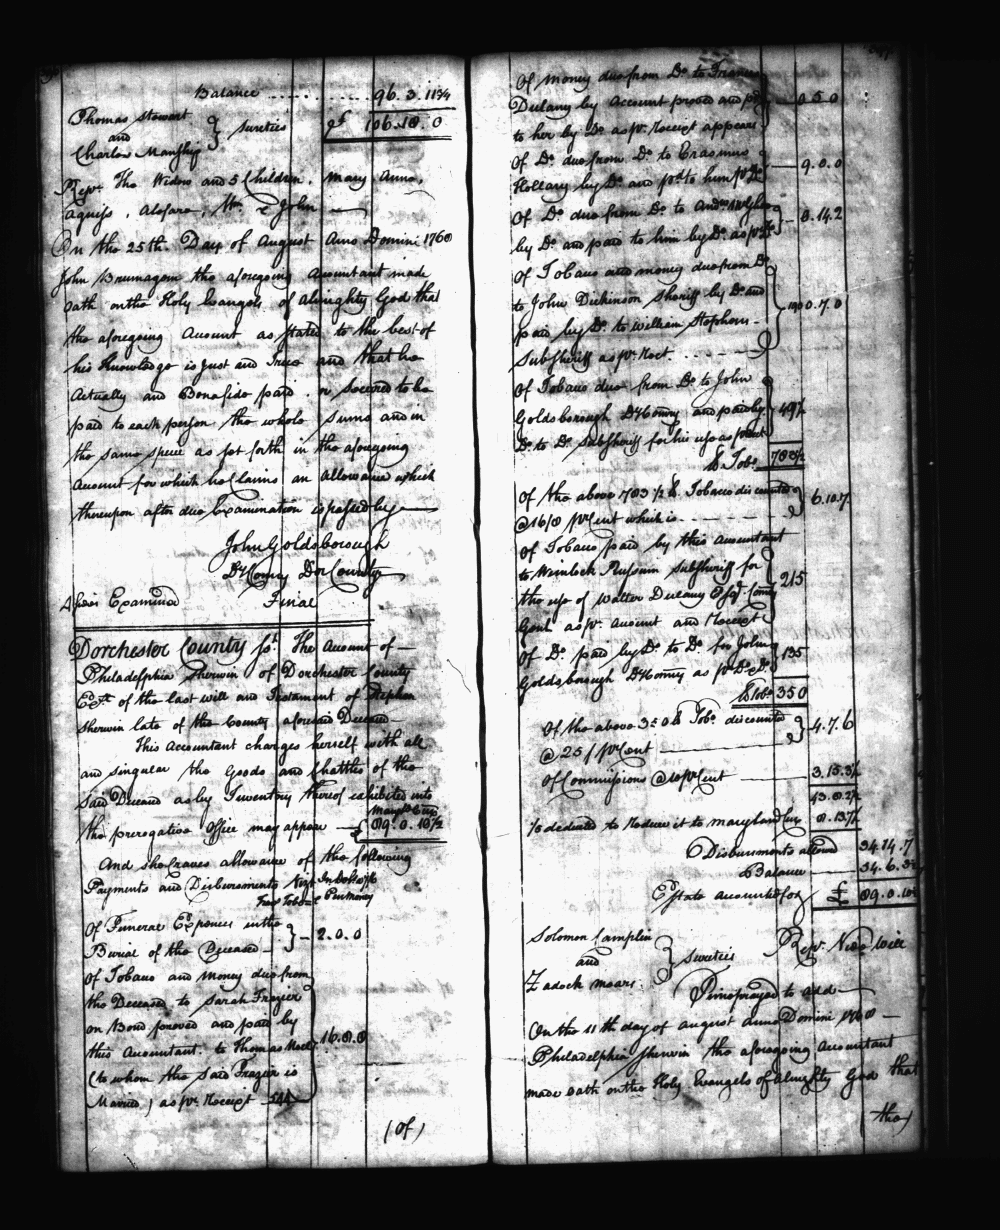 Balance ........... 96. 3. 11 3/4
Thomas Stewart
and } Sureties £ 106.18. 0
Charles Manship
Repr. The Widow and 5 Children. Mary Anne,
Wm. & John
On the 25th. Day of August Anno Domini 1760
John Brumagem the aforegoing Accountant made
oath on the Holy Evangels of Almighty God that
the aforegoing Account as stated to the best of
his Knowledge is Just and True and that he
Actually and Bonafide paid or secured to be
paid to each person the whole Sums and in
the same specie as set forth in the aforegoing
Account for which he Claims an Allowance which
thereupon after due Examination is passed by
John Goldsborough
Dy Comry Dor County
Examined Final
Dorchester County ss. The Account of
Philadelphia Sherwin of Dorchester County
Exx. of the last will and Testament of Stephen
Sherwin late of the County aforesaid Deceased
This Accountant charges herself with all
and singular the Goods and Chattles of the
Said Deceased as by Inventory thereof exhibited into
the prerogative Office may appear 89. 0. 10 1/2
And she craves allowance of the following
Payments and Disbursements Vizt
Of Funeral Expences in the
Burial of the Deceased } 2. 0. 0
Of Tobacco and money due from
the Deceased to Sarah Frazier
on Bond proved and paid by
this Accountant to Thomas
(to whom the Said Frazier is
Married) as pr. Receipt
(Of)
Of money due from Do. to Francis
Dulany by Account proved and pd.
to her by Do. as pr. Receipt appears } 0.5.0
Of Do. due from Do. to Erasmus
by Do. and pd. to him pr. Do. 9.0.0
Of Do. due from Do. to
by Do. and paid to him by Do. as pr. Do. } 8.14.2
Of Tobacco and money due from Do.
to John Dickinson Sheriff by Do. and
paid by Do. to William Stephens
Subsheriff as pr. Rect.
Of Tobacco due from Do. to John
Goldsborough Dy Comry and paid by
Do. to Do. Subsheriff for his use as pr. Rect
lb Tobo. 783 1/2
Of the above 783 1/2 lb. Tobacco discounted
@ 16/8 pr Cent which is } 6.10.7
Of Tobacco paid by this Accountant
to Subsheriff for
the use of Walter Dulany Esqr. Comry
Genl. as pr. Account and Receipt } 215
Of Do. paid by Do. to Do. for John
Goldsborough Dy Comry as pr. Do. & Do. } 135
lb Tobo. 350
Of the above 350 lb Tobo. discounted
@ 25/ pr Cent } 4.7.6
Of Commissions @ 10 pr Cent 3.15.3 1/2
43.8.2 1/2
To deducted to Reduce it to Maryland Cury 8.13.7 1/2
Disbursements allowed 34.14.7
Balance 54.6.3 1/2
Estate accounted for £ 89.0.10 1/2
Solomon
and } Sureties Repr. Vide Will
Zadock
Time prayed to add
On the 11th day of August Anno Domini 1760
Philadelphia Sherwin the aforegoing Accountant
made oath on the Holy Evangels of Almighty God that
the)